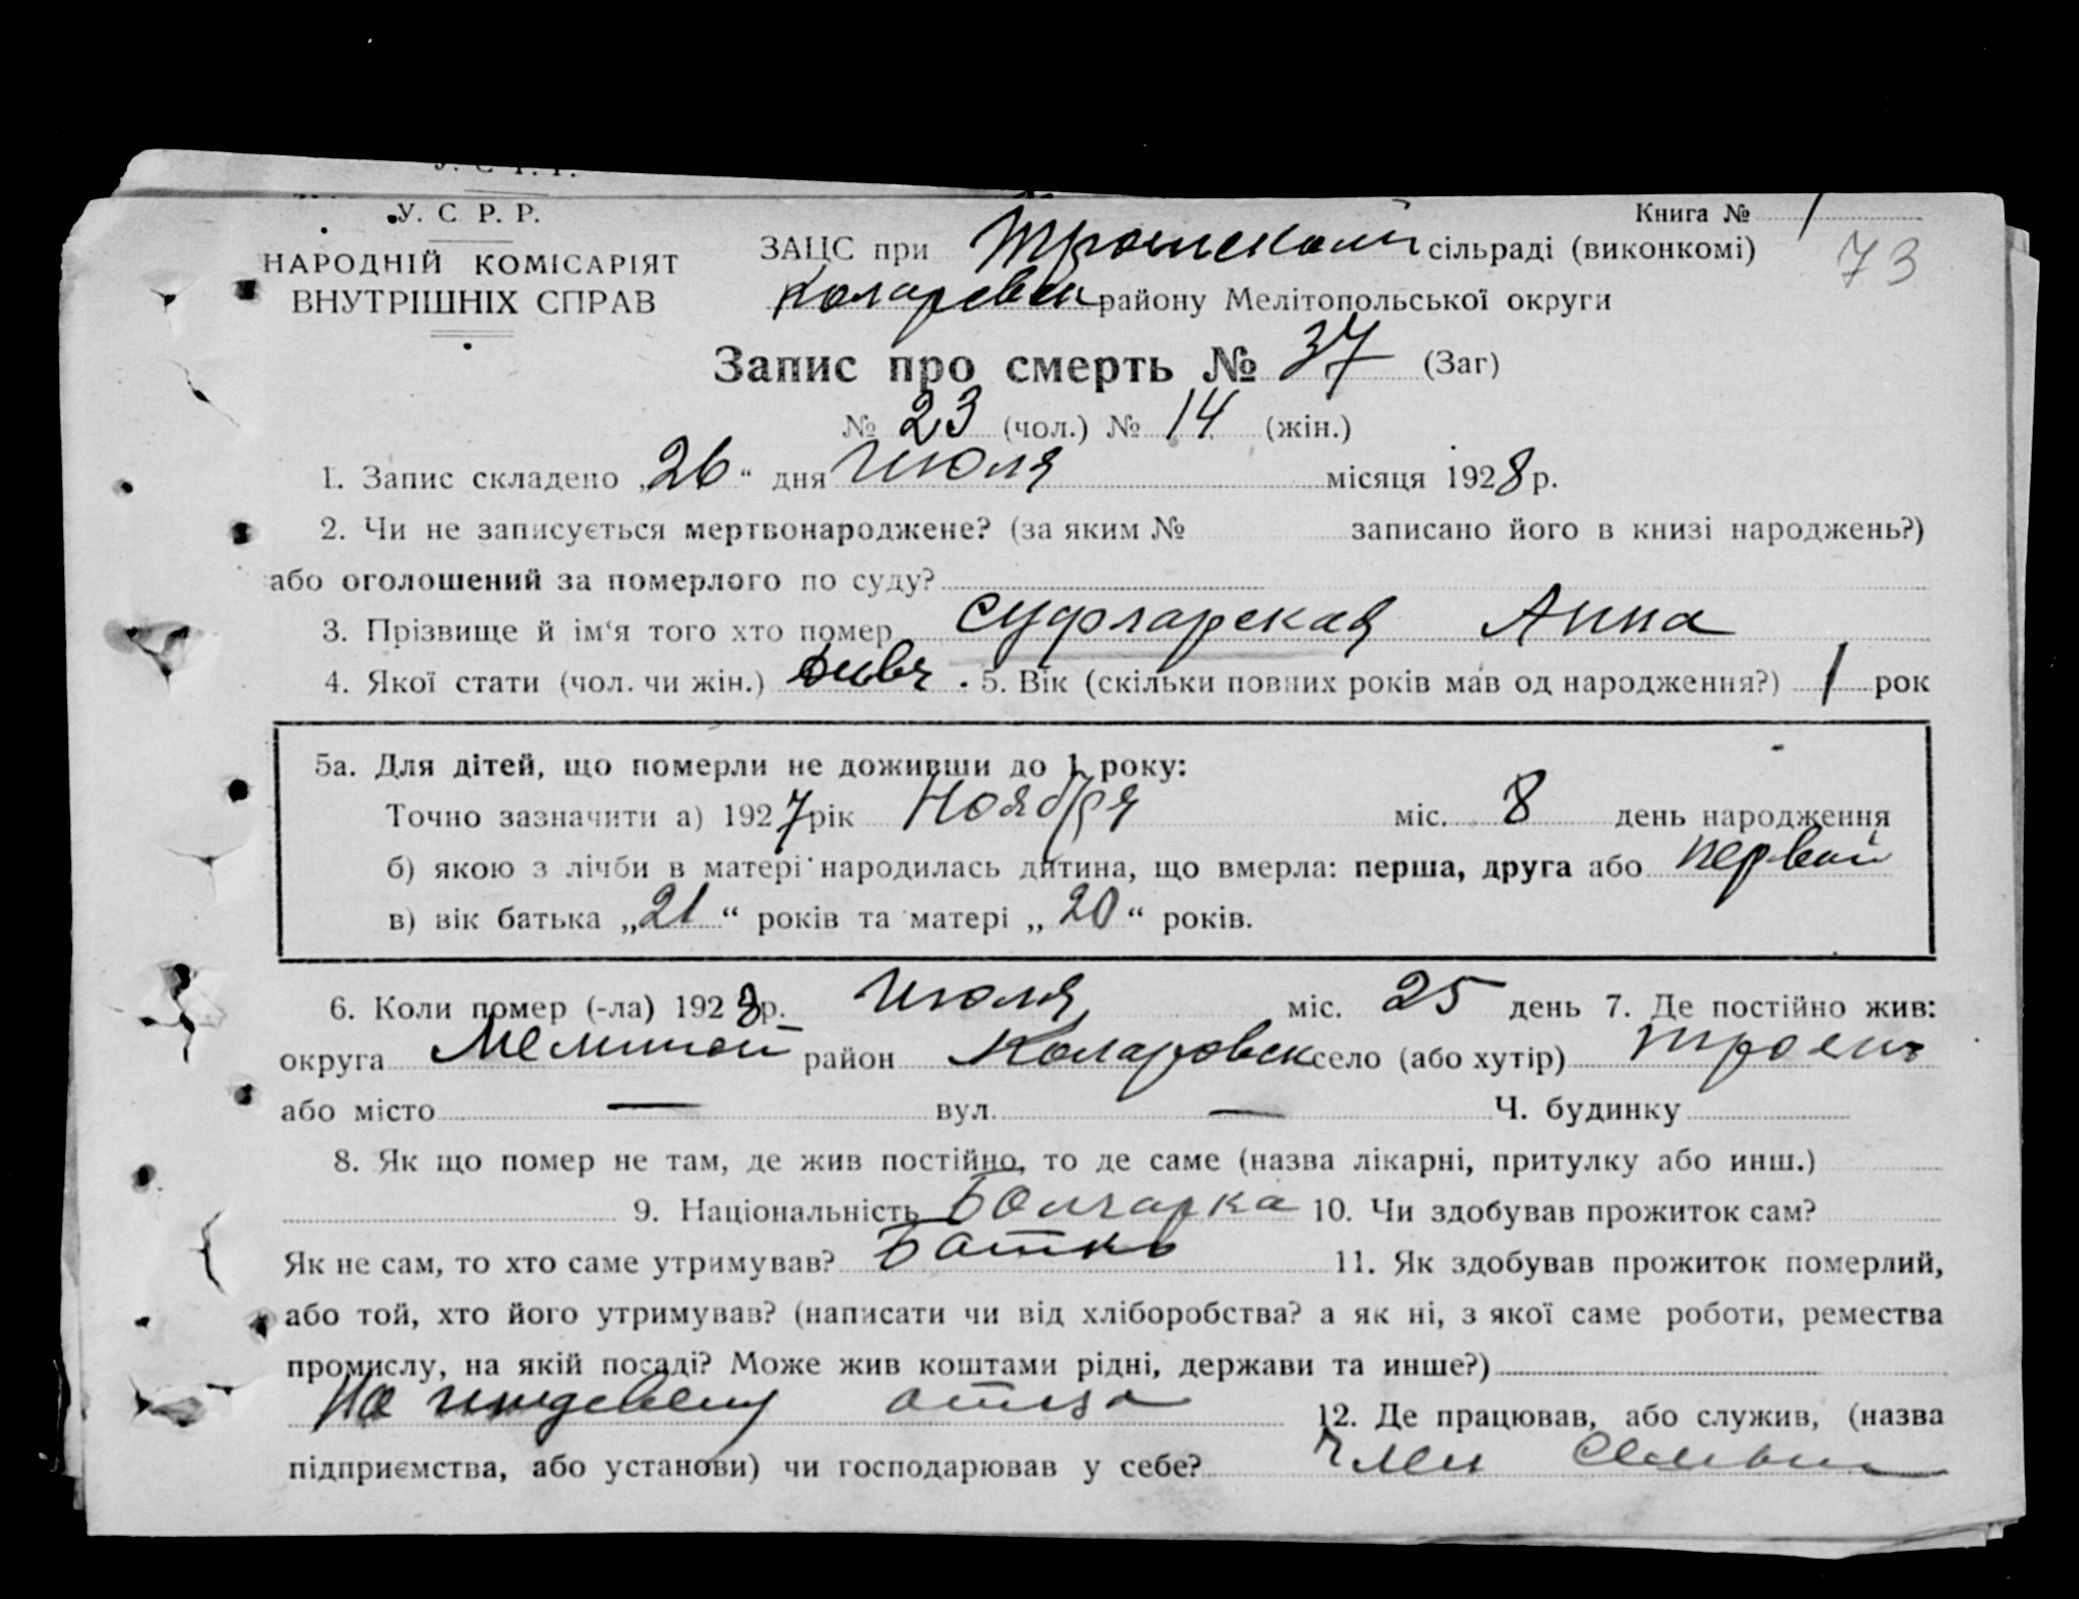 У. С. Р. Р.
НАРОДНІЙ КОМІСАРІЯТ
ВНУТРІШНІХ СПРАВ
Книга № 1
73
ЗАЦС при Троянском сільраді (виконкомі)
Коларовск району Мелітопольської округи
Запис про смерть № 37 (Заг)
№ 23 (чол.) № 14 (жін.)
1. Запис складено „26“ дня Июля місяця 1928 р.
2. Чи не записується мертвонароджене? (за яким № записано його в книзі народжень?)
або оголошений за померлого по суду?
3. Прізвище й ім‘я того хто помер Суфларская Анна
4. Якої стати (чол. чи жін.) 5. Вік (скільки повних років мав од народження?) 1 рок
5а. Для дітей, що померли не доживши до 1 року:
Точно зазначити а) 1927 рік Ноября міс. 8 день народження
б) якою з лічби в матері народилась дитина, що вмерла: перша, друга або первой
в) вік батька „21“ років та матері „20“ років.
6. Коли помер (-ла) 1928 р. Июля міс. 25 день 7. Де постійно жив:
округа район Коларовск село (або хутір) Троян
або місто — вул. — Ч. будинку
8. Як що помер не там, де жив постійно, то де саме (назва лікарні, притулку або инш.)
9. Національність Болгарка 10. Чи здобував прожиток сам?
Як не сам, то хто саме утримував? Батько 11. Як здобував прожиток померлий,
або той, хто його утримував? (написати чи від хліборобства? а як ні, з якої саме роботи, ремества
промислу, на якій посаді? Може жив коштами рідні, держави та инше?)
На отца 12. Де працював, або служив, (назва
підприємства, або установи) чи господарював у себе? Член семьи